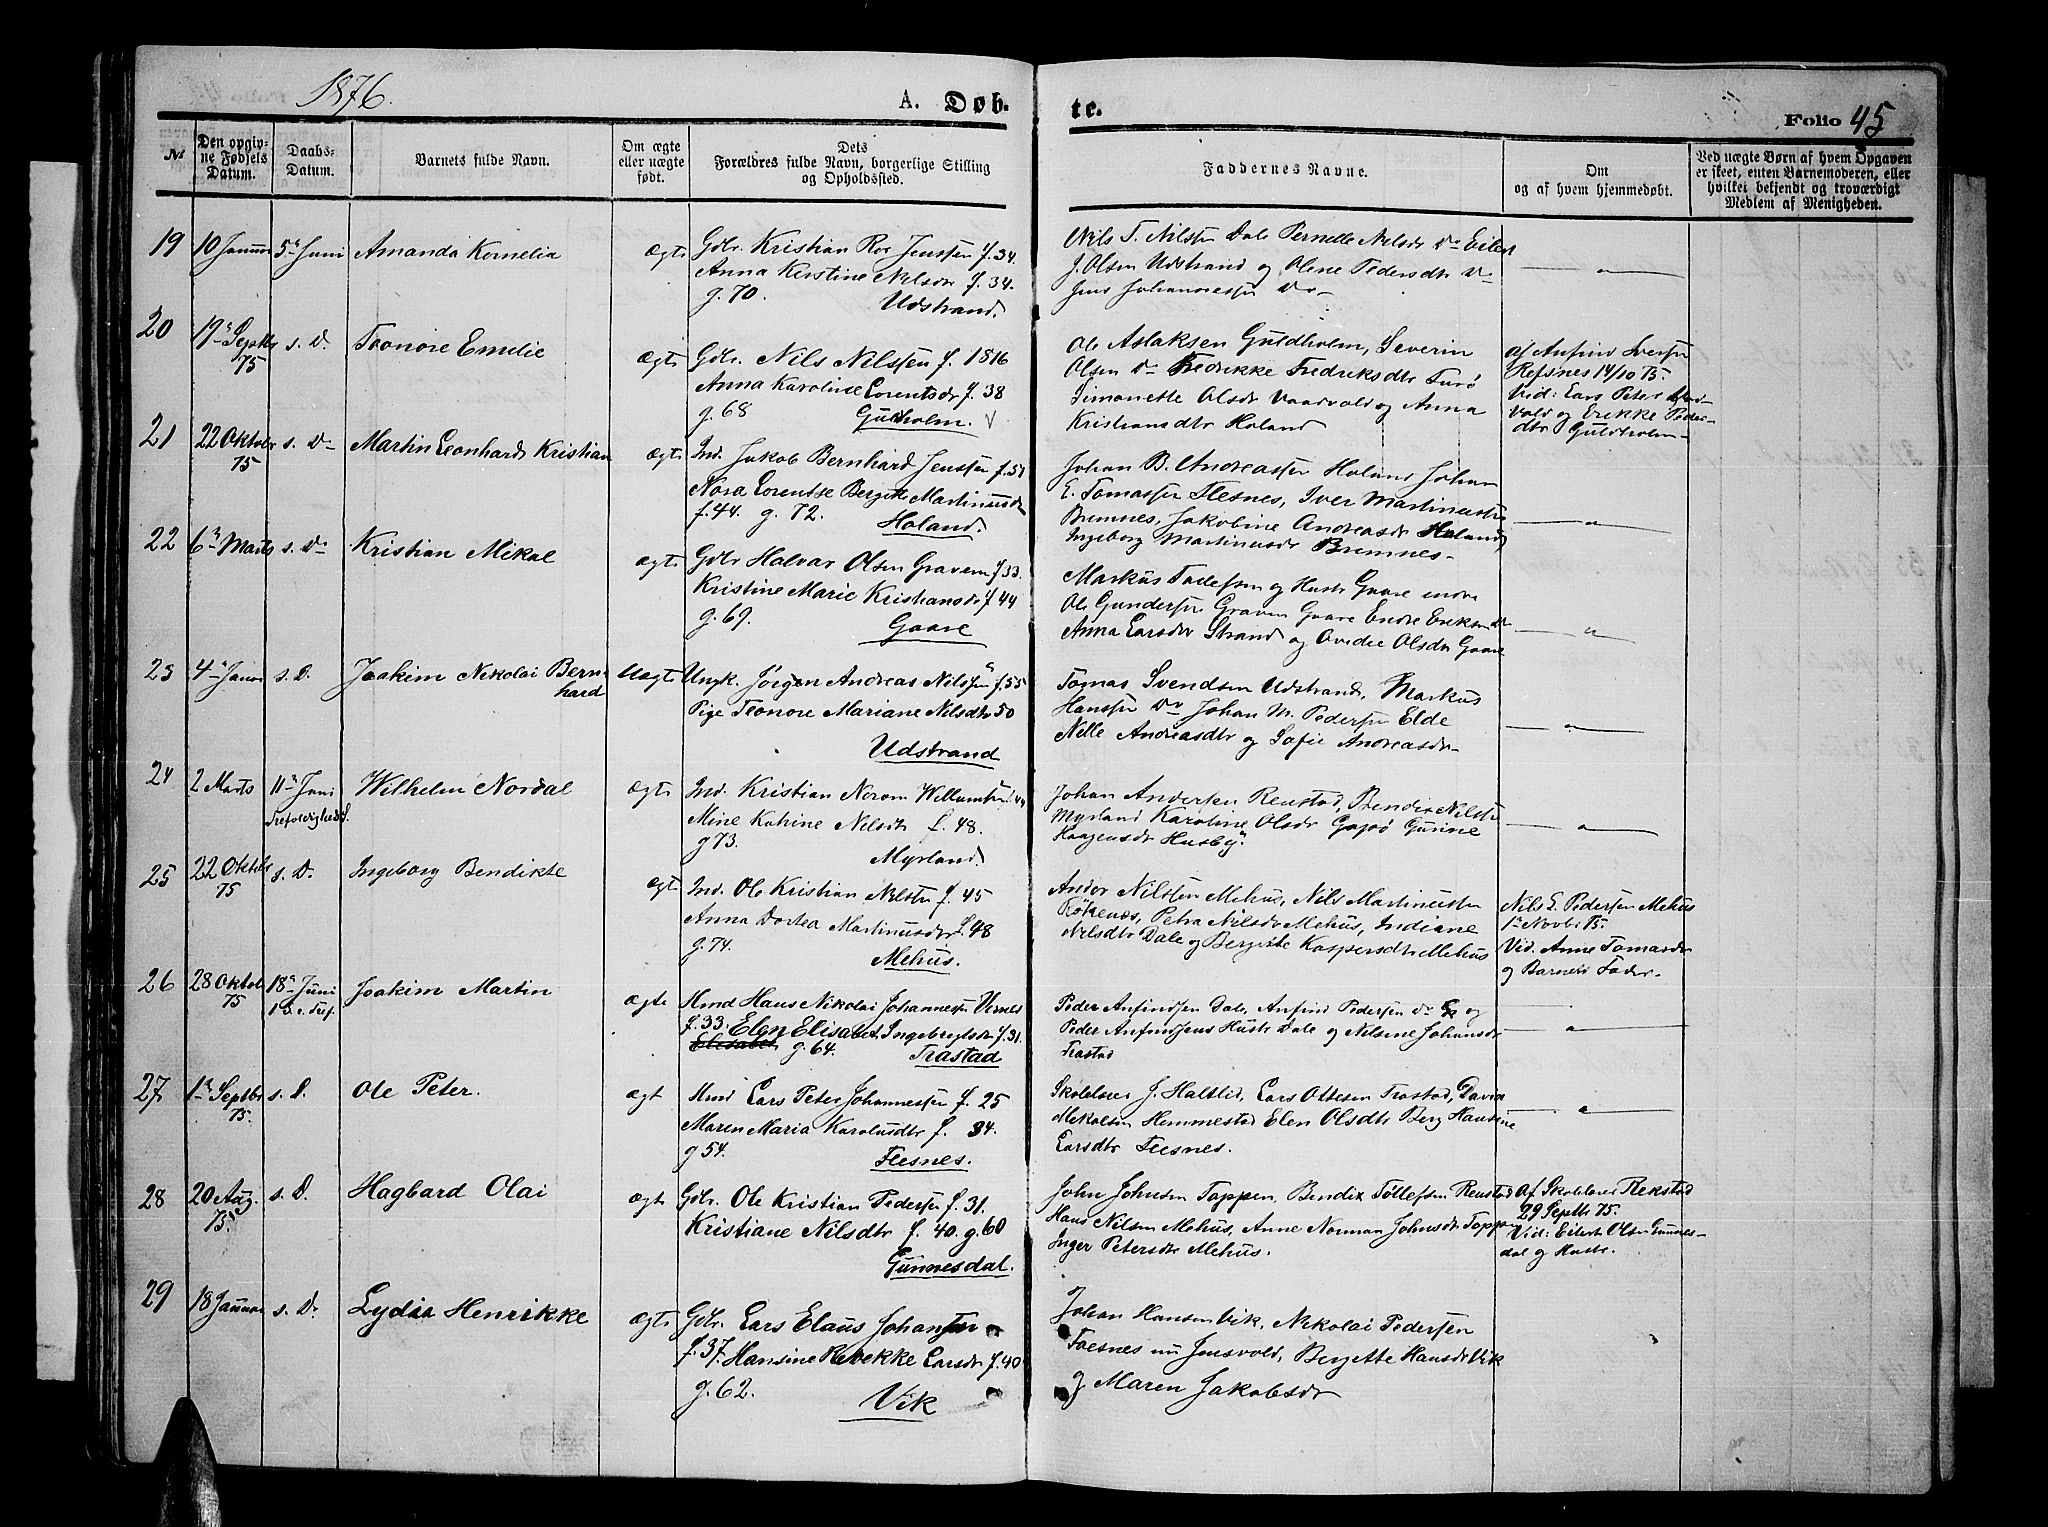 1876.
A. Døb-
te.
Folio 45
№
Den opgiv-
ne Fødsels
Datum.
Daabs-
Datum.
Barnets fulde Navn.
Om ægte
eller uægte
født.
Dets
Forældres fulde Navn, borgerlige Stilling
og Opholdssted.
Faddernes Navne.
Om
og af hvem hjemmedøbt.
Ved uægte Børn af hvem Opgaven
er skeet, enten Barnemoderen, eller
hvilket bekjendt og troværdigt
Medlem af Menigheden.
19
10 Januar
5te Juni
Amanda Kornelia
ægte
Gdbr. Kristian Ror Jenssen f. 34.
Anna Kirstine Nilsdr f. 34.
g. 70.
Udstrand.
Nils T. Nilssen Dale Pernelle Nilsdr Do Eilert
J. Olsen Udstrand og Olene Pedersdtr Do
Jens Johannessen Do
20
19 Septbr
75
s. D.
Leonore Emelie
ægte
Gdbr. Nils Nilssen f. 1816
Anna Karoline Lorentsdr f. 38
g. 68
Guldholm.
Ole Aslaksen Guldholm, Severin
Olsen Do Fredrikke Fredriksdtr
Simonette Olsdr Vaarvold og Anna
Kristiansdtr Holand
af Anfind Iversen
Refsnes 14/10 75.
Vid: Lars Peter
vold og Erikke Peder-
dtr Guldholm
21
22 Oktobr
75
s. D.
Martin Leonhard Kristian
ægte
Ind. Jakob Bernhard Jenssen f. 51
Nora Lorentse Bergitte Martinusdr
f. 44. g. 72.
Holand.
Johan B. Andreassen Holand Johan
E. Tomassen Flesnes, Iver Martinussen
Bremnes, Jakobine Andreasdr Holand,
Ingeborg Martinusdr Bremnes
22
6te Marts
s. D.
Kristian Mikal
ægte
Gdbr Halvar Olsen Graven f. 33.
Kristine Marie Kristiansdr f. 44
g. 69.
Gaare
Markus Tollefsen og Hustr Gaare indre
Ole Gundersen Graven Gaare Endre Eriksen Do
Anna Larsdr Strand og Ovedie Olsdr Gaare
23
4de Januar
s. D.
Joakim Nikolai Bern-
hard
Uægte
Ungk. Jørgen Andreas Nilssen f. 55
Pige Leonore Mariane Nilsdtr 50
Udstrand
Tomas Svendsen Udstrand, Markus
Hanssen Do Johan M. Pedersen Elde
Nelle Andreasdtr og Sofie Andreasdr
24
2 Marts
11te Juni
Trefoldigheds.
Wilhelm Nordal
ægte
Ind. Kristian Norum Willumsen 44
Mine Katrine Nilsdtr f. 48.
g 73.
Myrland.
Johan Andersen Renstad, Bendix Nilssen
Myrland Karoline Olsdr Gapø Gurine
Haagensdr Husby.
25
22 Oktbr
75
s. D.
Ingeborg Bendikte
ægt
Ind. Ole Kristian Nilssen f. 45
Anna Dortea Martinusdtr f. 48
g. 74.
Mehus.
Ander Nilssen Mehus, Nils Martinussen
Røkenæs, Petra Nilsdr Mehus, Indiane
Nilsdtr Dale og Bergitte Kaspersdtr Mehus
Nils E. Pedersen Mehus
1te Novbr 75.
Vid. Anne Tomasdr
og Barnets Fader.
26
28 Oktobr
75
18de Juni
1 S. e. Tref.
Joakim Martin
ægte
Hmd Hans Nikolai Johannessen Vernes
f. 33. Elen Elisabet Ingebrigtsdr f. 31.
Elisabet g. 64.
Trastad
Peder Anfindsen Dale, Anfind Pedersen do og
Peder Anfindsens Hustr Dale og Nilsine Johansdr
Trastad
27
1te Septbr
75.
s. D.
Ole Peter.
ægt
Hmd Lars Peter Johannessen f. 25
Maren Maria Karolusdtr f. 34.
g 54.
Flesnes.
Skolelærer J. Haltlid, Lars Ottesen Trastad, David
Mikalsen Hemmestad Elen Olsdtr Berg Hansine
Larsdtr Flesnes.
28
20 Aug.
75.
s. D.
Hagbard Olai
ægte
Gdbr. Ole Kristian Pedersen f. 31.
Kristiane Nilsdtr f. 40. g. 60
Gunnesdal.
John Johnsen Toppen, Bendix Tollefsen Renstad
Hans Nilsen Mehus, Anne Norman Johnsdr Toppen
Inger Petersdtr Mehus.
Af Skolelærer Rekstad
29 Septbr 75.
Vid: Eilert Olsen Gunnes-
dal og Hustr.
29
18 Januar
s. D.
Lydia Henrikke
ægte
Gdbr. Lars Elaus Johansen
f. 37. Hansine Rebekke Larsdr f. 40
g. 62.
Vik
Johan Hansen Vik, Nikolai Pedersen
Flesnes nu Jensvold, Bergette Hansdr Vik
og Maren Jakobsdr